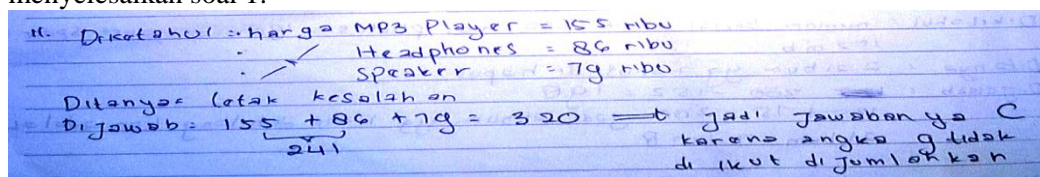 menyelesaikan soal 1.
11. Diketahui : harga MP3 Player = 155 ribu
Headphones = 86 ribu
Speaker = 79 ribu
Ditanya = letak kesalahan
Dijawab = 155 + 86 + 79 = 320 ⇒ jadi jawaban ya C
241 karena angka 9 tidak
di ikut di jumlahkan